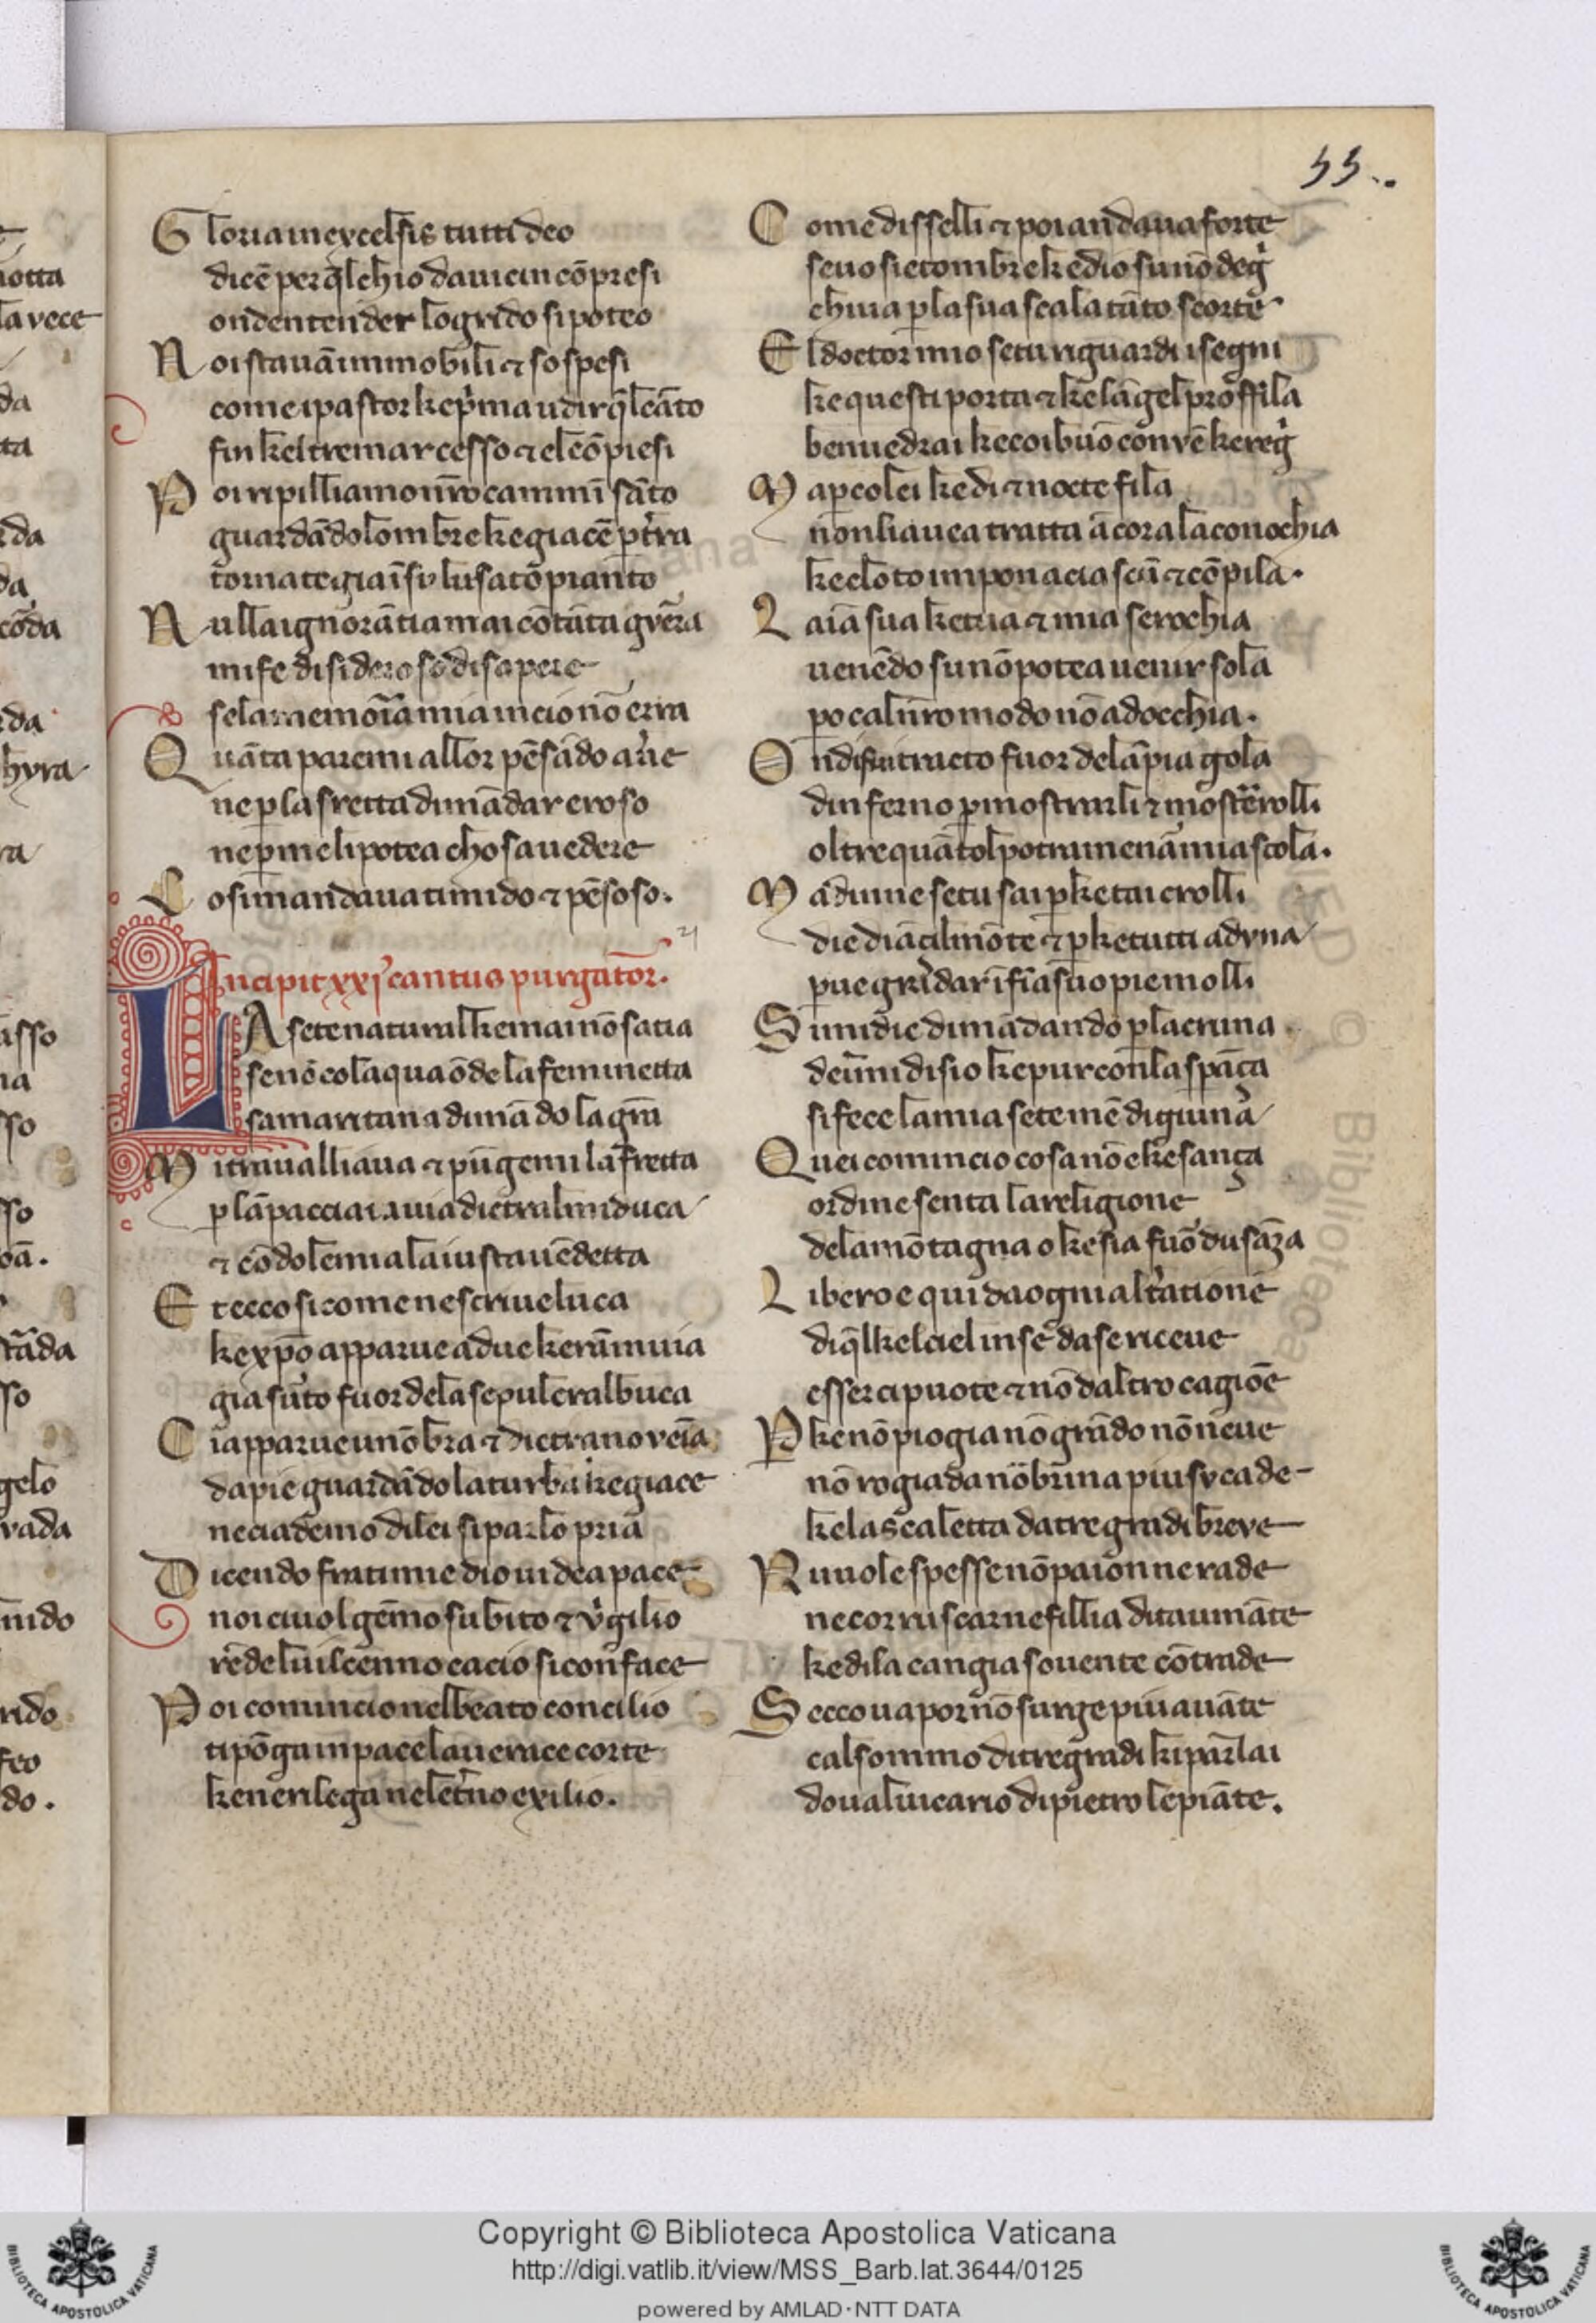 55..
Gloria in excelsis tutti deo
dicē per q̄l chio da uicin cōpresi
onde ntender lo grido si poteo
Noi stauā immobili ⁊ sospesi
come i pastor ke p̓ma udir q̄l cāto
fin kel tremar cesso ⁊ el cōpiesi
Poi ripilliamo nr̄o cammī sāto
guardādo lombre ke giacē p̱ t̓ra
tornate gia ī su lusato pianto
Nulla ignorātia mai cō tāta gvēra
mi fe disideroso di sapere
se la memoīa mia in cio nō erra
Quāta paremi allor pēsādo au̓e
ne p̱ la fretta dimādar ero so
ne p̱ me li potea chosa uedere
Cosi mandaua timido ⁊ pēsoso.
21
Incipit xxj cantus purgator̄.
LA sete natural ke mai nō satia
se nō cō laqua ōde la feminetta
samaritana dimādo la gr̄a
Mi traualliaua ⁊ pūgemi la fretta
p̱ lāpacciata uia dietral mi duca
⁊ cōdolemi a la iusta uēdetta
Et ecco si come ne scriue luca
ke xp̄o apparue a due kerā in uia
gia surto fuor de la sepulcral buca
Ci apparue unōbra ⁊ dietra no veīa
da pie guardādo la turba ke giace
ne ci ademo di lei si parlo pria
Dicendo frati mie dio ui dea pace
noi ci uolgēmo subito ⁊ v̓gilio
rēdeli il cenno ca cio si conface
Poi comincio nel beato concilio
ti pōga in pace la uerace corte
ke ne rilega ne let̓no exilio.
Come disselli ⁊ poi andaua forte
se uo siete ombre ke dio su nō deg̓
chiua p̱ la sua scala tāto scorte
El doctor mio se tu riguardi i segni
ke questi porta ⁊ ke lāgel proffila
ben uedrai ke coi buō convē ke reg̓
Ma p̱ colei ke di ⁊ nocte fila
non li auea tratta ācora la conochia
ke cloto impone a ciascū ⁊ cōpila.
Laīa sua ke tua ⁊ mia serochia
uenēdo su nō potea uenir sola
po cal nr̄o modo nō adocchia.
Ondi fui tracto fuor de lāpia gola
dinferno p̱ mostrarli ⁊ mostēr̄olli
oltre quātol potra menā mia scola.
Ma dimme se tu sai p̱ke tai crolli
die diāci l mōte ⁊ p̱ke tutti ad vna
p̱ue gridar īfiā suo pie molli
Si mi die dimādando p̱ la cruna
del mi disio ke pur con la spāça
si fece la mia sete mē digiuna
Quei comincio cosa nō e ke sança
ordine senta la religione
de la mōtagna o ke sia fuō dusāza
Libero e qui da ogni alt̓atione
di q̄l kel ciel in se da se riceue
esser ci puote ⁊ nō daltro cagiōe
P̱ke nō piogia nō grādo nō neue
nō rogiada nō brina piu sv cade
ke la scaletta da tre gradi breve
Nuuole spesse nō paion ne rade
ne corruscar ne fillia di taumāte
ke di la cangia souente cōtrade
Secco uapor nō surge piu auāte
cal sommo di tre gradi ki parlai
doual uicario di pietro le piāte.
Copyright © Biblioteca Apostolica Vaticana
http://digi.vatlib.it/view/MSS_Barb.lat.3644/0125
powered by AMLAD·NTT DATA